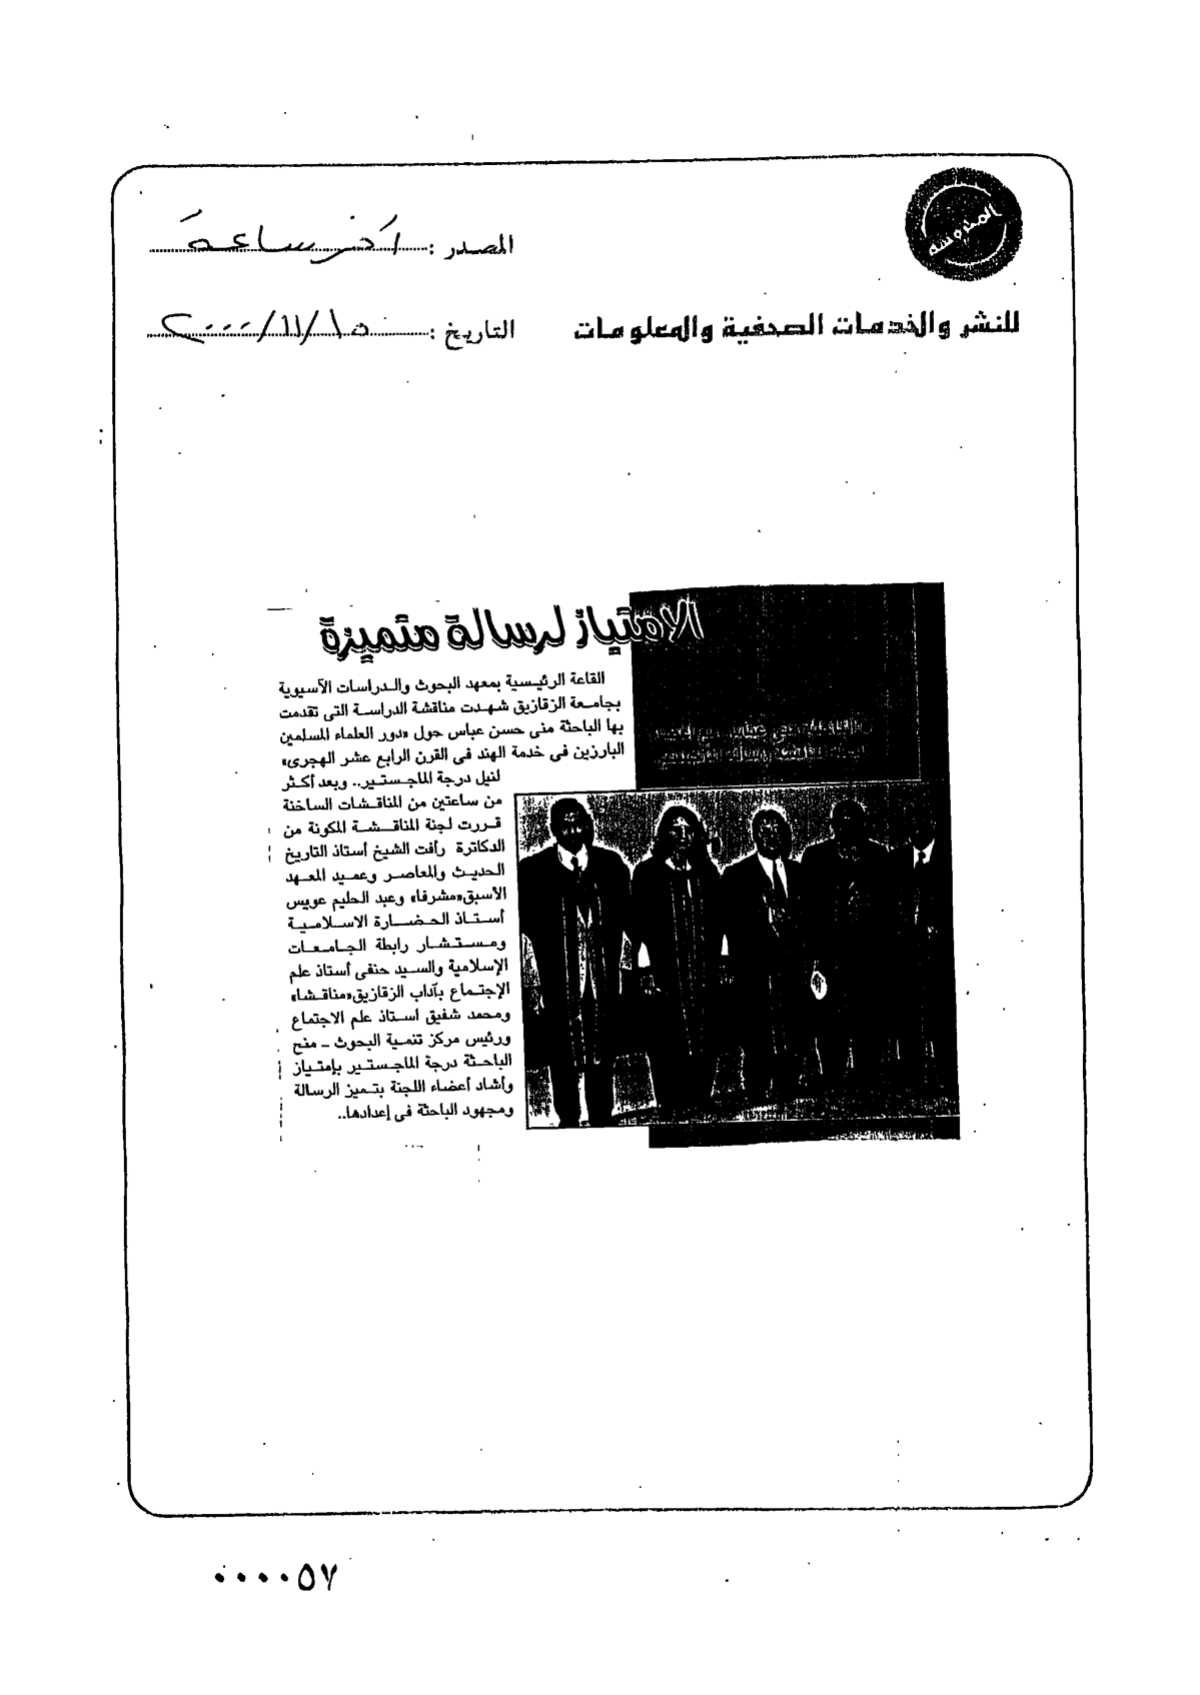 المحروسة
المصدر : آخر ساعة
للنشر والخدمات الصحفية والمعلومات
التاريخ : ١٥/١١/٢٠٠٠
الامتياز لرسالة متميزة
القاعة الرئيسية بمعهد البحوث والدراسات الآسيوية
بجامعة الزقازيق شهدت مناقشة الدراسة التى تقدمت
بها الباحثة منى حسن عباس حول «دور العلماء المسلمين
البارزين فى خدمة الهند فى القرن الرابع عشر الهجرى»
لنيل درجة الماجستير.. وبعد أكثر
من ساعتين من المناقشات الساخنة
قررت لجنة المناقشة المكونة من
الدكاترة رأفت الشيخ أستاذ التاريخ
الحديث والمعاصر وعميد المعهد
الأسبق«مشرفا» وعبد الحليم عويس
أستاذ الحضارة الاسلامية
ومستشار رابطة الجامعات
الإسلامية والسيد حنفى أستاذ علم
الإجتماع بآداب الزقازيق«مناقشا»
ومحمد شفيق استاذ علم الاجتماع
ورئيس مركز تنمية البحوث ـ منح
الباحثة درجة الماجستير بإمتياز
وأشاد أعضاء اللجنة بتميز الرسالة
ومجهود الباحثة فى إعدادها..
٠٠٠٠٥٧